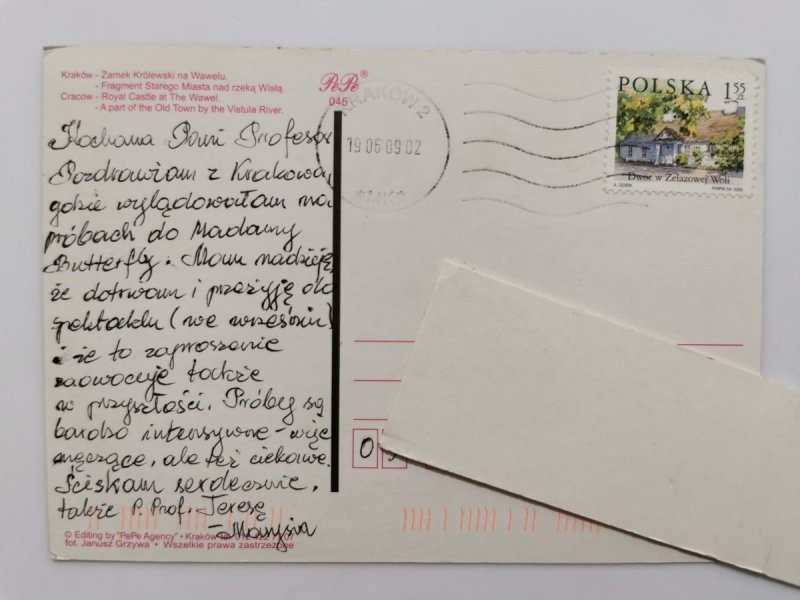 Kraków - Zamek Królewski na Wawelu.
- Fragment Starego Miasta nad rzeką Wisłą.
Cracow - Royal Castle at The Wawel.
- A part of the Old Town by the Vistula River.
PePe®
045
KRAKÓW 2
19.06.09.02
POLSKA 1 55 zł
Dwór w Żelazowej Woli
Kochana Pani Profesor
Pozdrawiam z Krakowa,
gdzie wylądowałam na
próbach do Madamy
Butterfly. Mam nadzieję,
że dotrwam i przeżyję do
spektaklu (we wrześniu)
i że to zaproszenie
zaowocuje także
w przyszłości. Próby są
bardzo intensywne - więc
męczące, ale też ciekawe.
Ściskam serdecznie,
także P. Prof. Teresę
- Marysia
0
© Editing by "PePe Agency" • Kraków
fot. Janusz Grzywa • Wszelkie prawa zastrzeżone